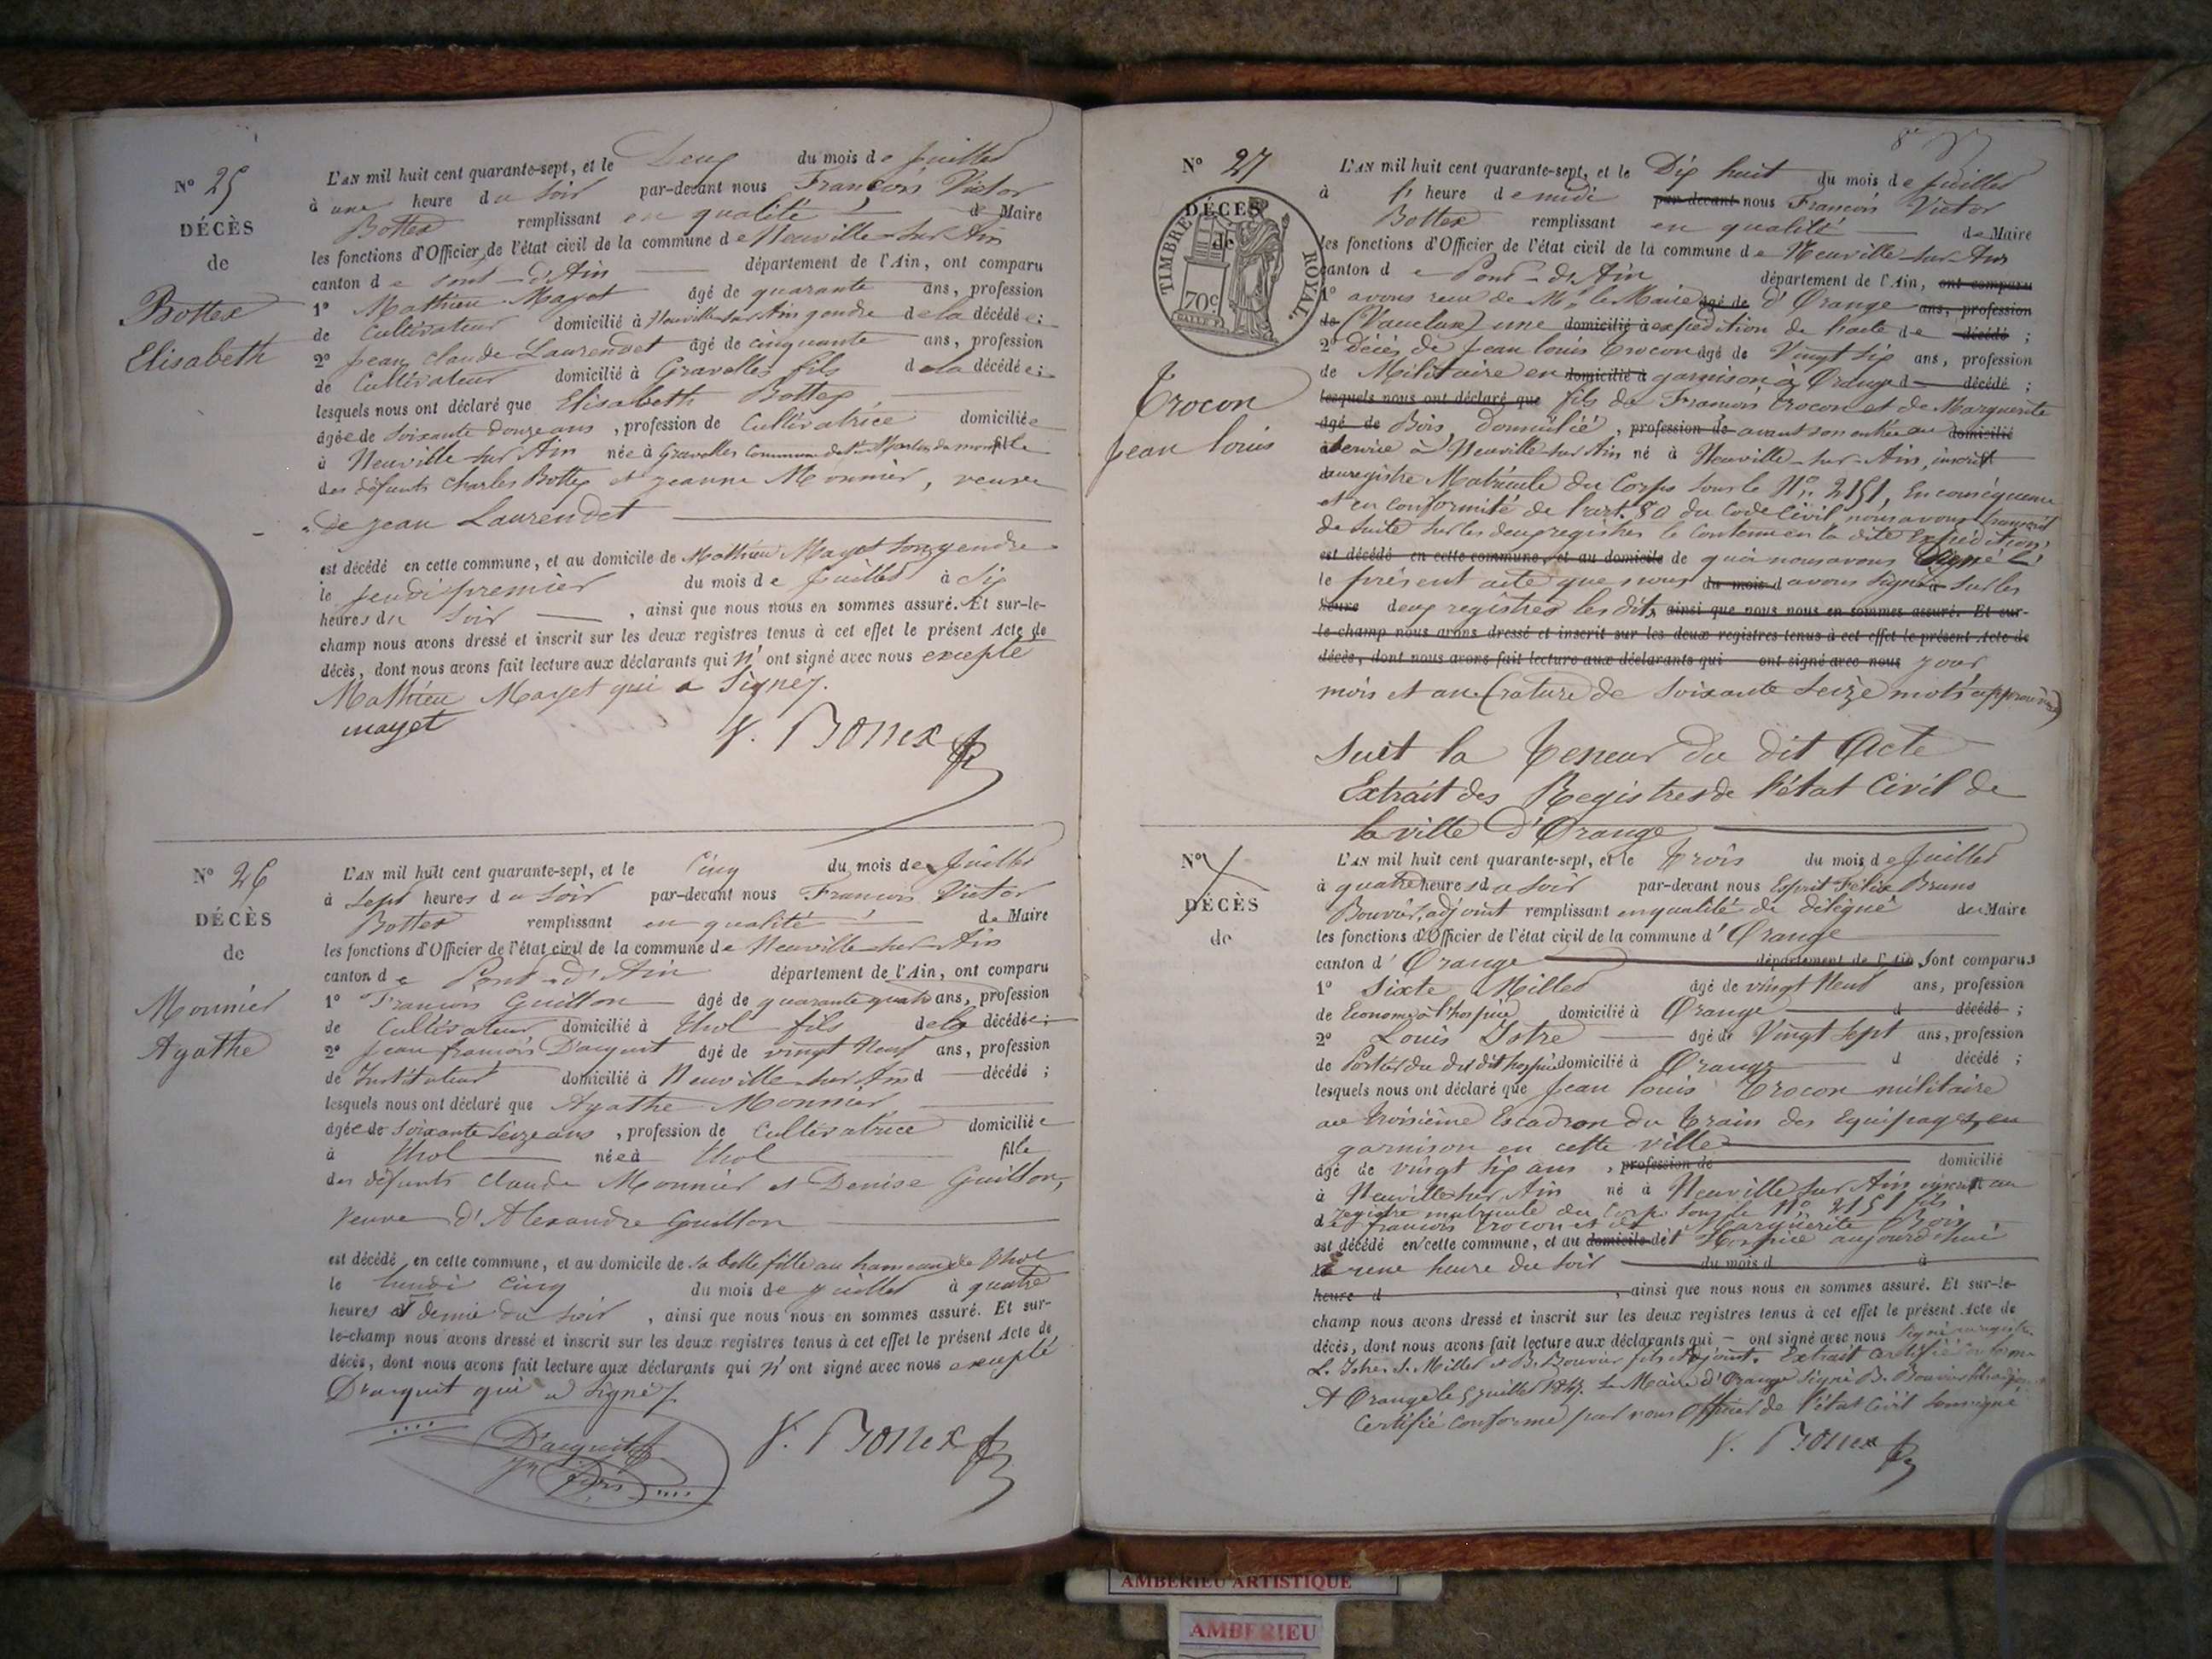 N° 25
DÉCÈS
de
Bottex
Elisabeth
L'AN mil huit cent quarante-sept, et le Deux du mois de Juillet
à une heure du Soir par-devant nous François Victor
Bottex remplissant en qualité de Maire
les fonctions d'Officier de l'état civil de la commune de Neuville-sur-Ain
canton de Pont-d'Ain département de l'Ain, ont comparu
1° Mathieu Mayet âgé de quarante ans, profession
de Cultivateur domicilié à Neuville sur Ain gendre de la décédée;
2° Jean Claude Laurendet âgé de cinquante ans, profession
de Cultivateur domicilié à Gravelles fils de la décédée;
lesquels nous ont déclaré que Elisabeth Bottex
âgée de soixante douze ans, profession de Cultivatrice domiciliée
à Neuville-sur-Ain née à Gravelles Commune de St Martin du mont fille
des défunts Charles Bottex et Jeanne Monnier, veuve
de Jean Laurendet
est décédé en cette commune, et au domicile de Mathieu Mayet son gendre
le Jeudi premier du mois de Juillet à Six
heures du Soir, ainsi que nous nous en sommes assuré. Et sur-le-
champ nous avons dressé et inscrit sur les deux registres tenus à cet effet le présent Acte de
décès, dont nous avons fait lecture aux déclarants qui n'ont signé avec nous excepté
Mathieu Mayet qui a Signé.
mayet V. Bottex
N° 26
DÉCÈS
de
Monnier
Agathe
L'AN mil huit cent quarante-sept, et le Cinq du mois de Juillet
à Sept heures du Soir par-devant nous François Victor
Bottex remplissant en qualité de Maire
les fonctions d'Officier de l'état civil de la commune de Neuville-sur-Ain
canton de Pont-d'Ain département de l'Ain, ont comparu
1° François Guillon âgé de quarante quatre ans, profession
de Cultivateur domicilié à Thol fils de la décédée;
2° Jean françois D'acquit âgé de vingt neuf ans, profession
de Instituteur domicilié à Neuville sur Ain d décédé;
lesquels nous ont déclaré que Agathe Monnier
âgée de soixante seize ans, profession de Cultivatrice domiciliée
à Thol née à Thol fille
des défunts Claude Monnier et Denise Guillon,
Veuve d'Alexandre Guillon
est décédé en cette commune, et au domicile de sa belle fille au hameau de Thol
le lundi cinq du mois de juillet à quatre
heures et demie du soir, ainsi que nous nous en sommes assuré. Et sur-
le-champ nous avons dressé et inscrit sur les deux registres tenus à cet effet le présent Acte de
décès, dont nous avons fait lecture aux déclarants qui n'ont signé avec nous excepté
D'acquit qui a signé
D'acquit V. Bottex
N° 27
DÉCÈS
de
TIMBRE ROYAL
70c
Trocon
Jean louis
L'AN mil huit cent quarante-sept, et le Dix huit du mois de Juillet
à heure de midi par-devant nous François Victor
Bottex remplissant en qualité de Maire
les fonctions d'Officier de l'état civil de la commune de Neuville-sur-Ain
canton de Pont-d'Ain département de l'Ain, ont comparu
1° avons reçu de Mr le Maire âgé de d'Orange ans, profession
de (Vaucluse) une domicilié à expédition de l'acte de décédé;
2° décès de Jean louis Trocon âgé de Vingt six ans, profession
de Militaire en domicilié à garnison à Orange d décédé;
lesquels nous ont déclaré que fils de François Trocon et de Marguerite
âgé de Bois domicilié, profession de avant son entrée au domicilié
à service à Neuville-sur-Ain né à Neuville-sur-Ain, inscrit
au registre Matricule du Corps sous le N° 2151, En conséquence
et en conformité de l'art. 80 du Code Civil nous avons transcrit
de suite sur les deux registres le contenu en la dite Expédition,
est décédé en cette commune, et au domicile de quoi nous avons signé
le présent acte que nous du mois d avons signé à sur les
heure deux registres les dits, ainsi que nous nous en sommes assuré. Et sur-
le-champ nous avons dressé et inscrit sur les deux registres tenus à cet effet le présent Acte de
décès, dont nous avons fait lecture aux déclarants qui ont signé avec nous jour
mois et an (rature de soixante seize mots approuvée)
Suit la teneur du dit Acte
Extrait des Registres de l'état Civil de
la ville d'Orange
N°
DÉCÈS
de
L'AN mil huit cent quarante-sept, et le trois du mois de Juillet
à quatre heures du soir par-devant nous Esprit Félix Bruno
Bouvier, adjoint remplissant en qualité de délégué du Maire
les fonctions d'Officier de l'état civil de la commune d'Orange
canton d'Orange département de l'Ain sont comparus
1° Sixte Millet âgé de vingt Neuf ans, profession
de Econome à l'hospice domicilié à Orange d décédé;
2° Louis Istre âgé de Vingt Sept ans, profession
de Portier du dit hospice domicilié à Orange d décédé;
lesquels nous ont déclaré que Jean louis Trocon militaire
au troisième Escadron du train des Equipages, en
garnison en cette ville
âgé de vingt six ans, profession de domicilié
à Neuville sur Ain né à Neuville sur Ain inscrit au
registre matricule du Corps sous le N° 2151 fils
de françois Trocon et de Marguerite Bois
est décédé en cette commune, et au domicile dit Hospice aujourd'hui
à une heure du soir du mois d à
heure d, ainsi que nous nous en sommes assuré. Et sur-le-
champ nous avons dressé et inscrit sur les deux registres tenus à cet effet le présent Acte de
décès, dont nous avons fait lecture aux déclarants qui ont signé avec nous Signé au registre
L. Istre. S. Millet et B. Bouvier fils adjoint. Extrait Certifié Conforme
A Orange le 5 juillet 1847. Le Maire d'Orange Signé B. Bouvier fils adjoint
Certifié conforme par nous Officier de l'état Civil soussigné
V. Bottex
AMBERIEU ARTISTIQUE
AMBERIEU